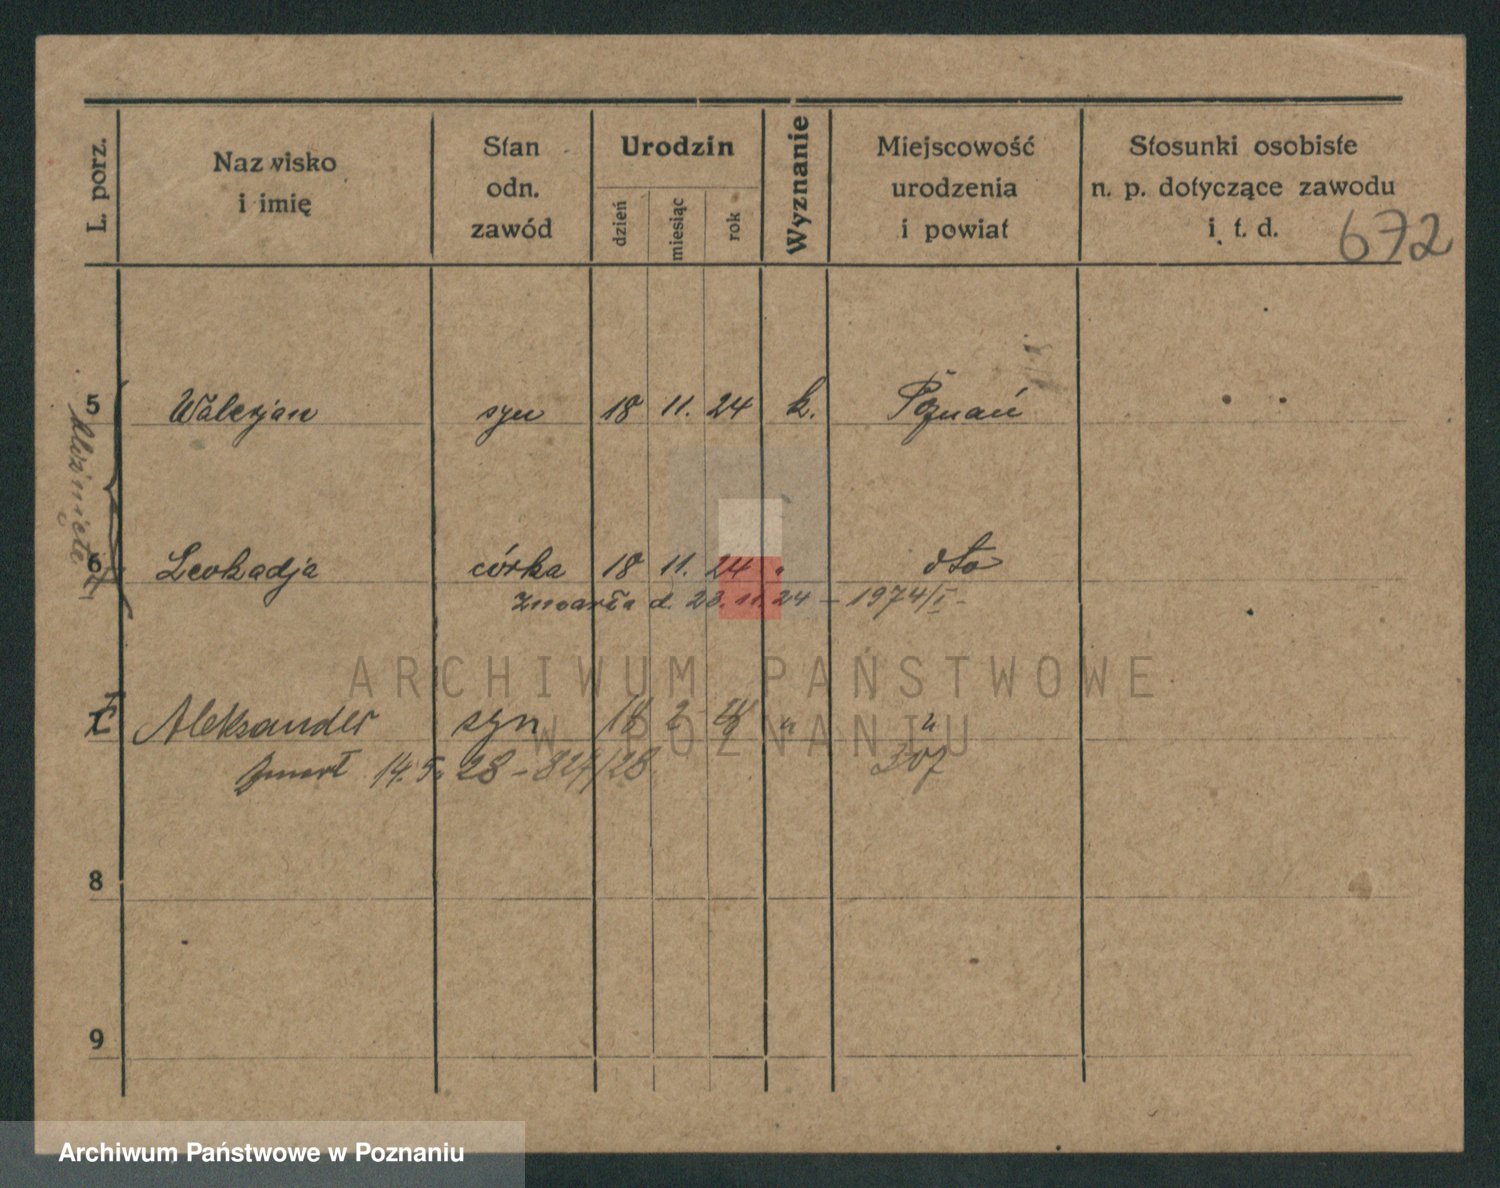 L. porz.
Nazwisko
i imię
Stan
odn.
zawód
Urodzin
dzień
miesiąc
rok
Wyznanie
Miejscowość
urodzenia
i powiat
Stosunki osobiste
n. p. dotyczące zawodu
i t. d.
672
5 Walerjan syn 18 11. 24 k. Poznań
6 Leokadja córka 18 11. 24 " dto
zmarła d. 23.11.24 – 1974/I –
Aleksander syn 18 2 " "
Zmarł 14.5.28 – 824/28 307
8
9
ARCHIWUM PAŃSTWOWE
W POZNANIU
Archiwum Państwowe w Poznaniu